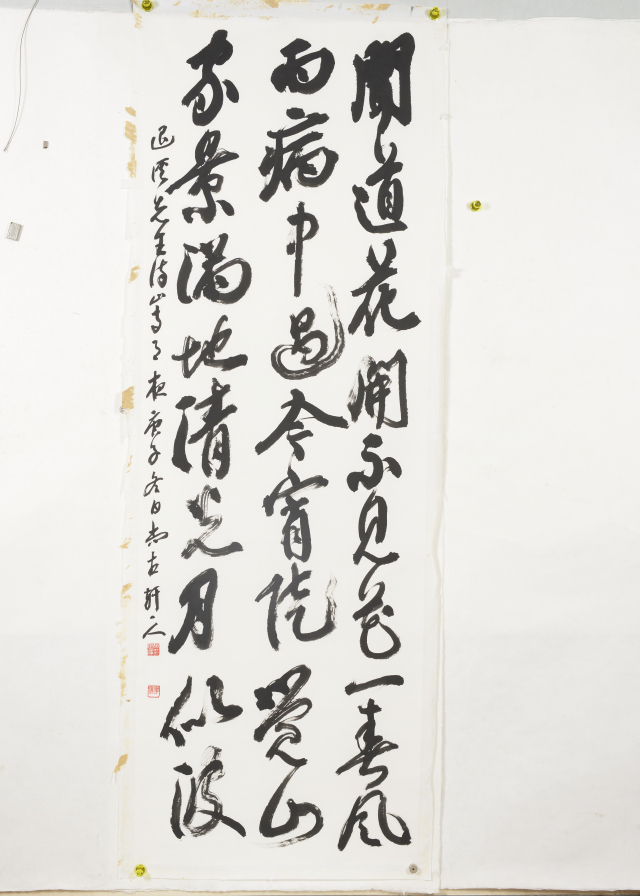 聞道花開不見花一春風
雨病中過今宵陡覺山
家景滿地清光月似波
退溪先生詩月夜庚子冬日尚古軒人